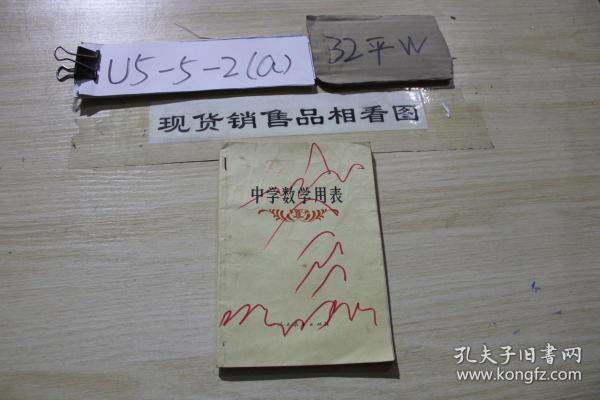 U5-5-2(a)
32平W
现货销售品相看图
中学数学用表
孔夫子旧书网
www.kongfz.com